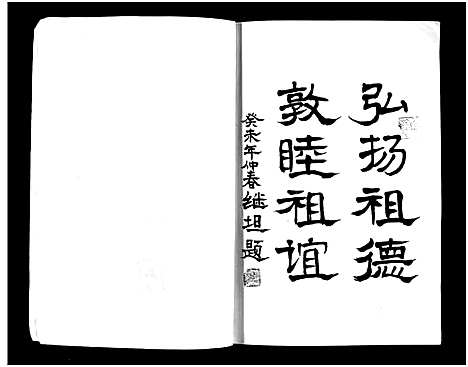 弘扬祖德
敦睦祖谊
癸未年仲春继坦题